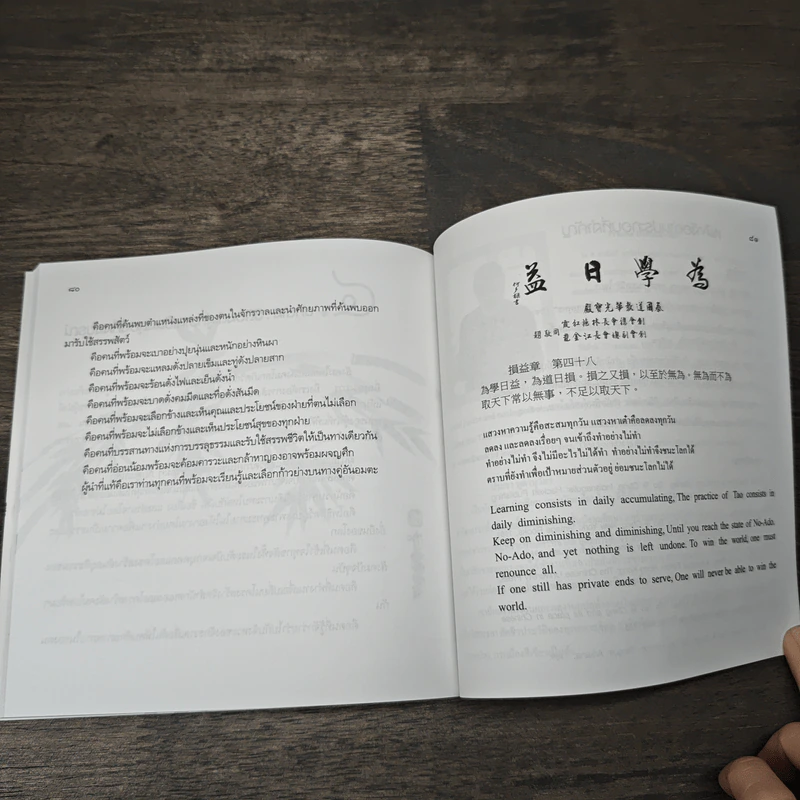 ๘๐
คือคนที่ค้นพบตำแหน่งแห่งที่ของตนในจักรวาลและนำศักยภาพที่ค้นพบออก
มารับใช้สรรพสัตว์
คือคนที่พร้อมจะเบาอย่างปุยนุ่นและหนักอย่างหินผา
คือคนที่พร้อมจะแหลมดั่งปลายเข็มและทู่ดังปลายสาก
คือคนที่พร้อมจะร้อนดั่งไฟและเย็นดั่งน้ำ
คือคนที่พร้อมจะบาดดั่งคมมีดและทื่อดั่งสันมีด
คือคนที่พร้อมจะเลือกข้างและเห็นคุณและประโยชน์ของฝ่ายที่ตนไม่เลือก
คือคนที่พร้อมจะไม่เลือกข้างและเห็นประโยชน์สุขของทุกฝ่าย
คือคนที่บรรสานทางแห่งการบรรลุธรรมและรับใช้สรรพชีวิตให้เป็นทางเดียวกัน
คือคนที่อ่อนน้อมพร้อมจะค้อมคารวะและกล้าหาญองอาจพร้อมผจญศึก
ผู้นำที่แท้คือเราท่านทุกคนที่พร้อมจะเรียนรู้และเลือกก้าวย่างบนทางคู่อันอมตะ
๘๑
為學日益
損益章 第四十八
為學日益，為道日損。損之又損，以至於無為。無為而不為
取天下常以無事，不足以取天下。
แสวงหาความรู้คือสะสมทุกวัน แสวงหาเต๋าคือลดลงทุกวัน
ลดลง และลดลงเรื่อยๆ จนเข้าถึงทำอย่างไม่ทำ
ทำอย่างไม่ทำ จึงไม่มีอะไรไม่ได้ทำ ทำอย่างไม่ทำจึงชนะโลกได้
ตราบที่ยังทำเพื่อเป้าหมายส่วนตัวอยู่ ย่อมชนะโลกไม่ได้
Learning consists in daily accumulating, The practice of Tao consists in
daily diminishing.
Keep on diminishing and diminishing, Until you reach the state of No-Ado.
No-Ado, and yet nothing is left undone. To win the world, one must
renounce all.
If one still has private ends to serve, One will never be able to win the
world.